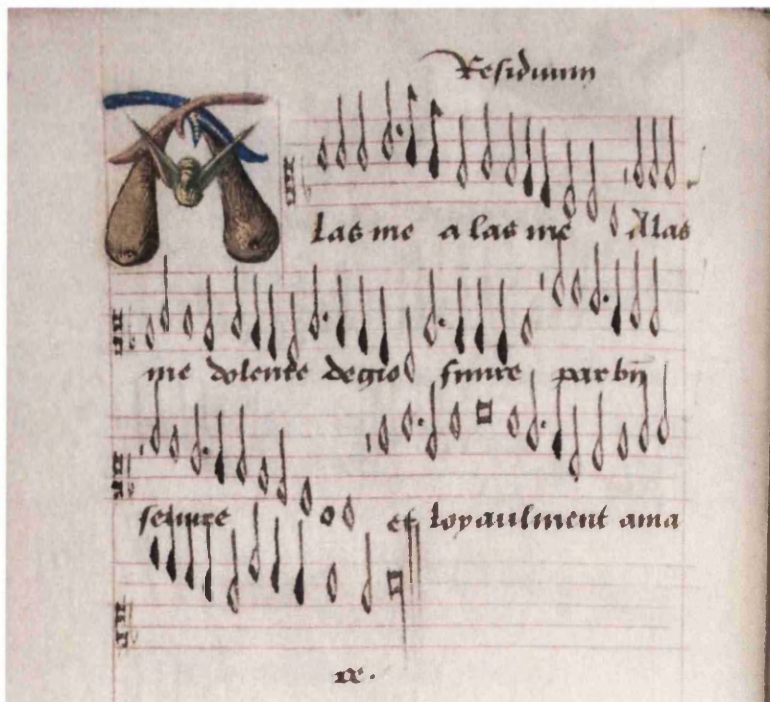 Residuum
A las me a las me Alas
me dolente degio sinire par bn
seruire et loyaulment ama
re.